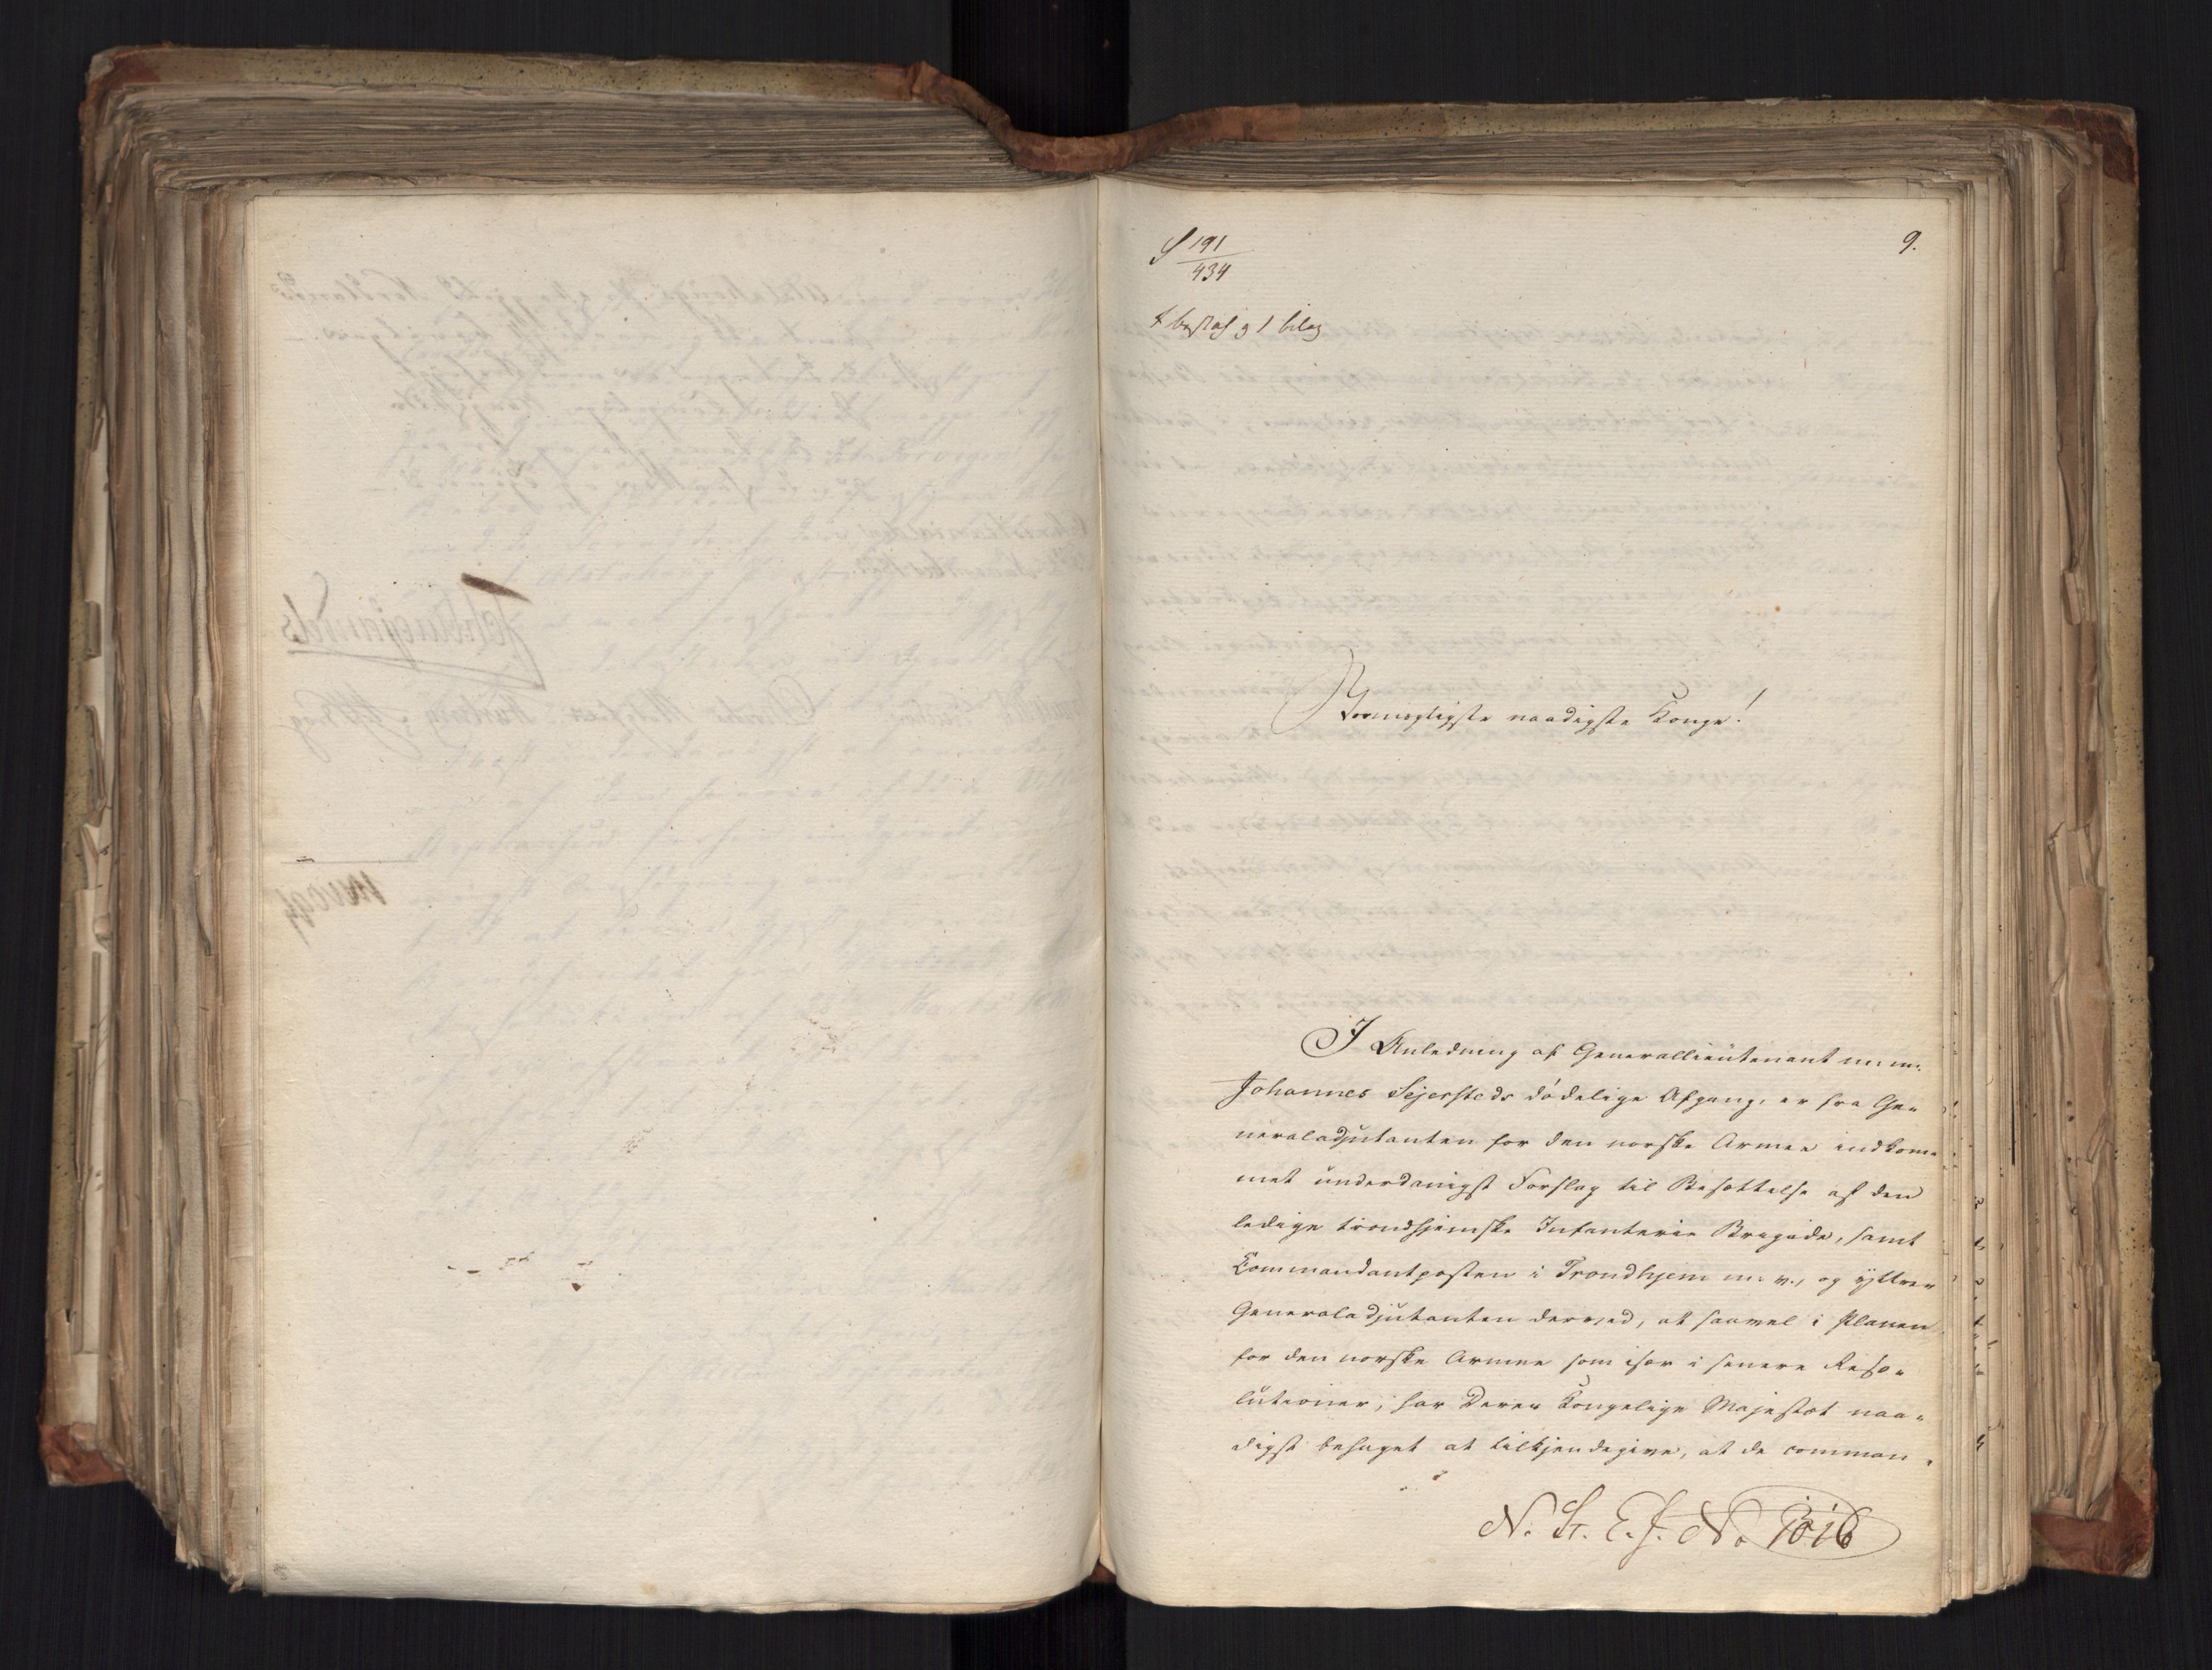 S 191/434
9.
1 bilag
Stormægtigste naadigste Konge!
I Anledning af Generallieutenant m: m:
Johannes Sejersteds dödelige Afgang, er fra Ge-
neraladjutanten for den norske Armee indkom-
met underdanigst Forslag til Besættelse af den
ledige trondhjemske Infanterie Brigade, samt
Commandantposten i Trondhjem m: v., og yttrer
Generaladjutanten derved, at saavel i Planen
for den norske Armee som især i senere Reso-
lutioner, har Deres Kongelige Majestæt naa-
digst behaget at tilkjendegive, at de comman-
N. St. E. J. No 1016